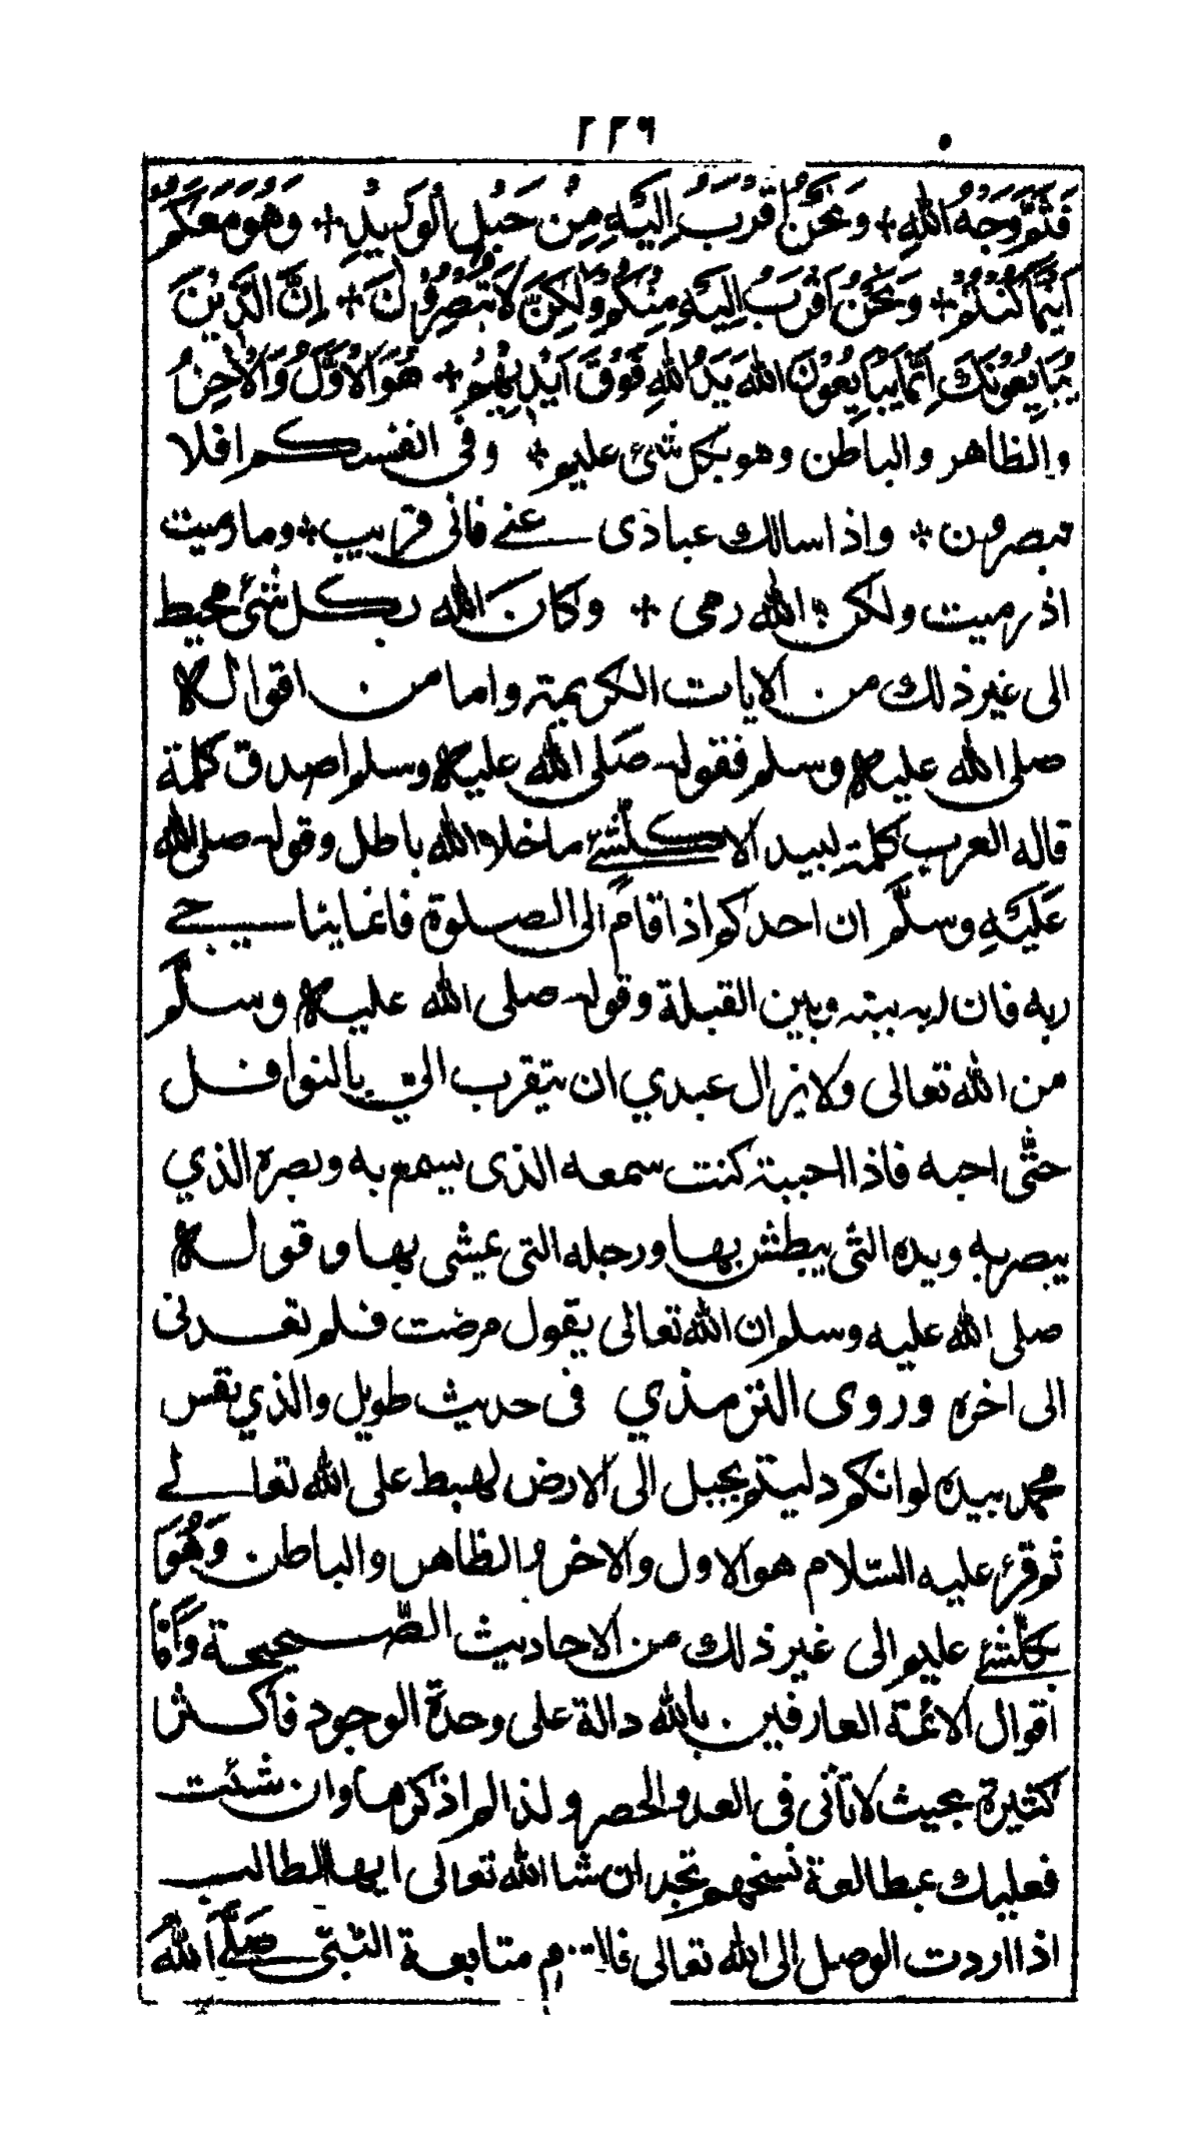 ٢٢٩
فَثَمَّ وَجْهُ اللّٰهِ + وَنَحْنُ اَقْرَبُ اِلَيْهِ مِنْ حَبْلِ الْوَرِيْدِ + وَهُوَ مَعَكُمْ
اَيْنَمَا كُنْتُمْ + وَنَحْنُ اَقْرَبُ اِلَيْهِ مِنْكُمْ وَلٰكِنْ لَا تُبْصِرُوْنَ + اِنَّ الَّذِيْنَ
يُبَايِعُوْنَكَ اِنَّمَا يُبَايِعُوْنَ اللّٰهَ يَدُ اللّٰهِ فَوْقَ اَيْدِيْهِمْ + هُوَ الْاَوَّلُ وَالْاٰخِرُ
والظاهر والباطن وهو بكل شئ عليم + وفى انفسكم افلا
تبصرون + واذا سالك عبادى عنى فانى قريب + وما رميت
اذ رميت ولكن الله رمى + وكان الله بكل شئ محيط
الى غير ذلك من الايات الكريمة واما من اقواله
صلى الله عليه وسلم فقوله صلى الله عليه وسلم اصدق كلمة
قاله العرب كلمة لبيد الا كل شئ ما خلا الله باطل وقوله صلى الله
عليه وسلّم ان احدكم اذا قام الى الصلوة فانما يناجى
ربه فان ربه بينه وبين القبلة وقوله صلى الله عليه وسلّم
من الله تعالى ولا يزال عبدي ان يتقرب الي بالنوافل
حتّى احبه فاذا احببته كنت سمعه الذى يسمع به وبصره الذي
يبصر به ويده التى يبطش بها ورجله التى يمشى بها وقوله
صلى الله عليه وسلم ان الله تعالى يقول مرضت فلم تعدنى
الى اخره وروى الترمذي فى حديث طويل والذي نفس
محمد بيده لو انكم دليتم بحبل الى الارض لهبط على الله تعالى
ثم قرء عليه السّلام هو الاول والاخر والظاهر والباطن وَهُوَ
بكل شئ عليم الى غير ذلك من الاحاديث الصّحيحة وَاَمَّا
اقوال الائمة العارفين بالله دالة على وحدة الوجود فاكثر
كثيرة بحيث لا تأتى فى العد والحصر ولذا لم اذكرها وان شئت
فعليك بمطالعة نسخهم تجد ان شا الله تعالى ايها الطالب
اذا اردت الوصل الى الله تعالى فالتزم متابعة النّبىّ صَلَّى اللّٰهُ